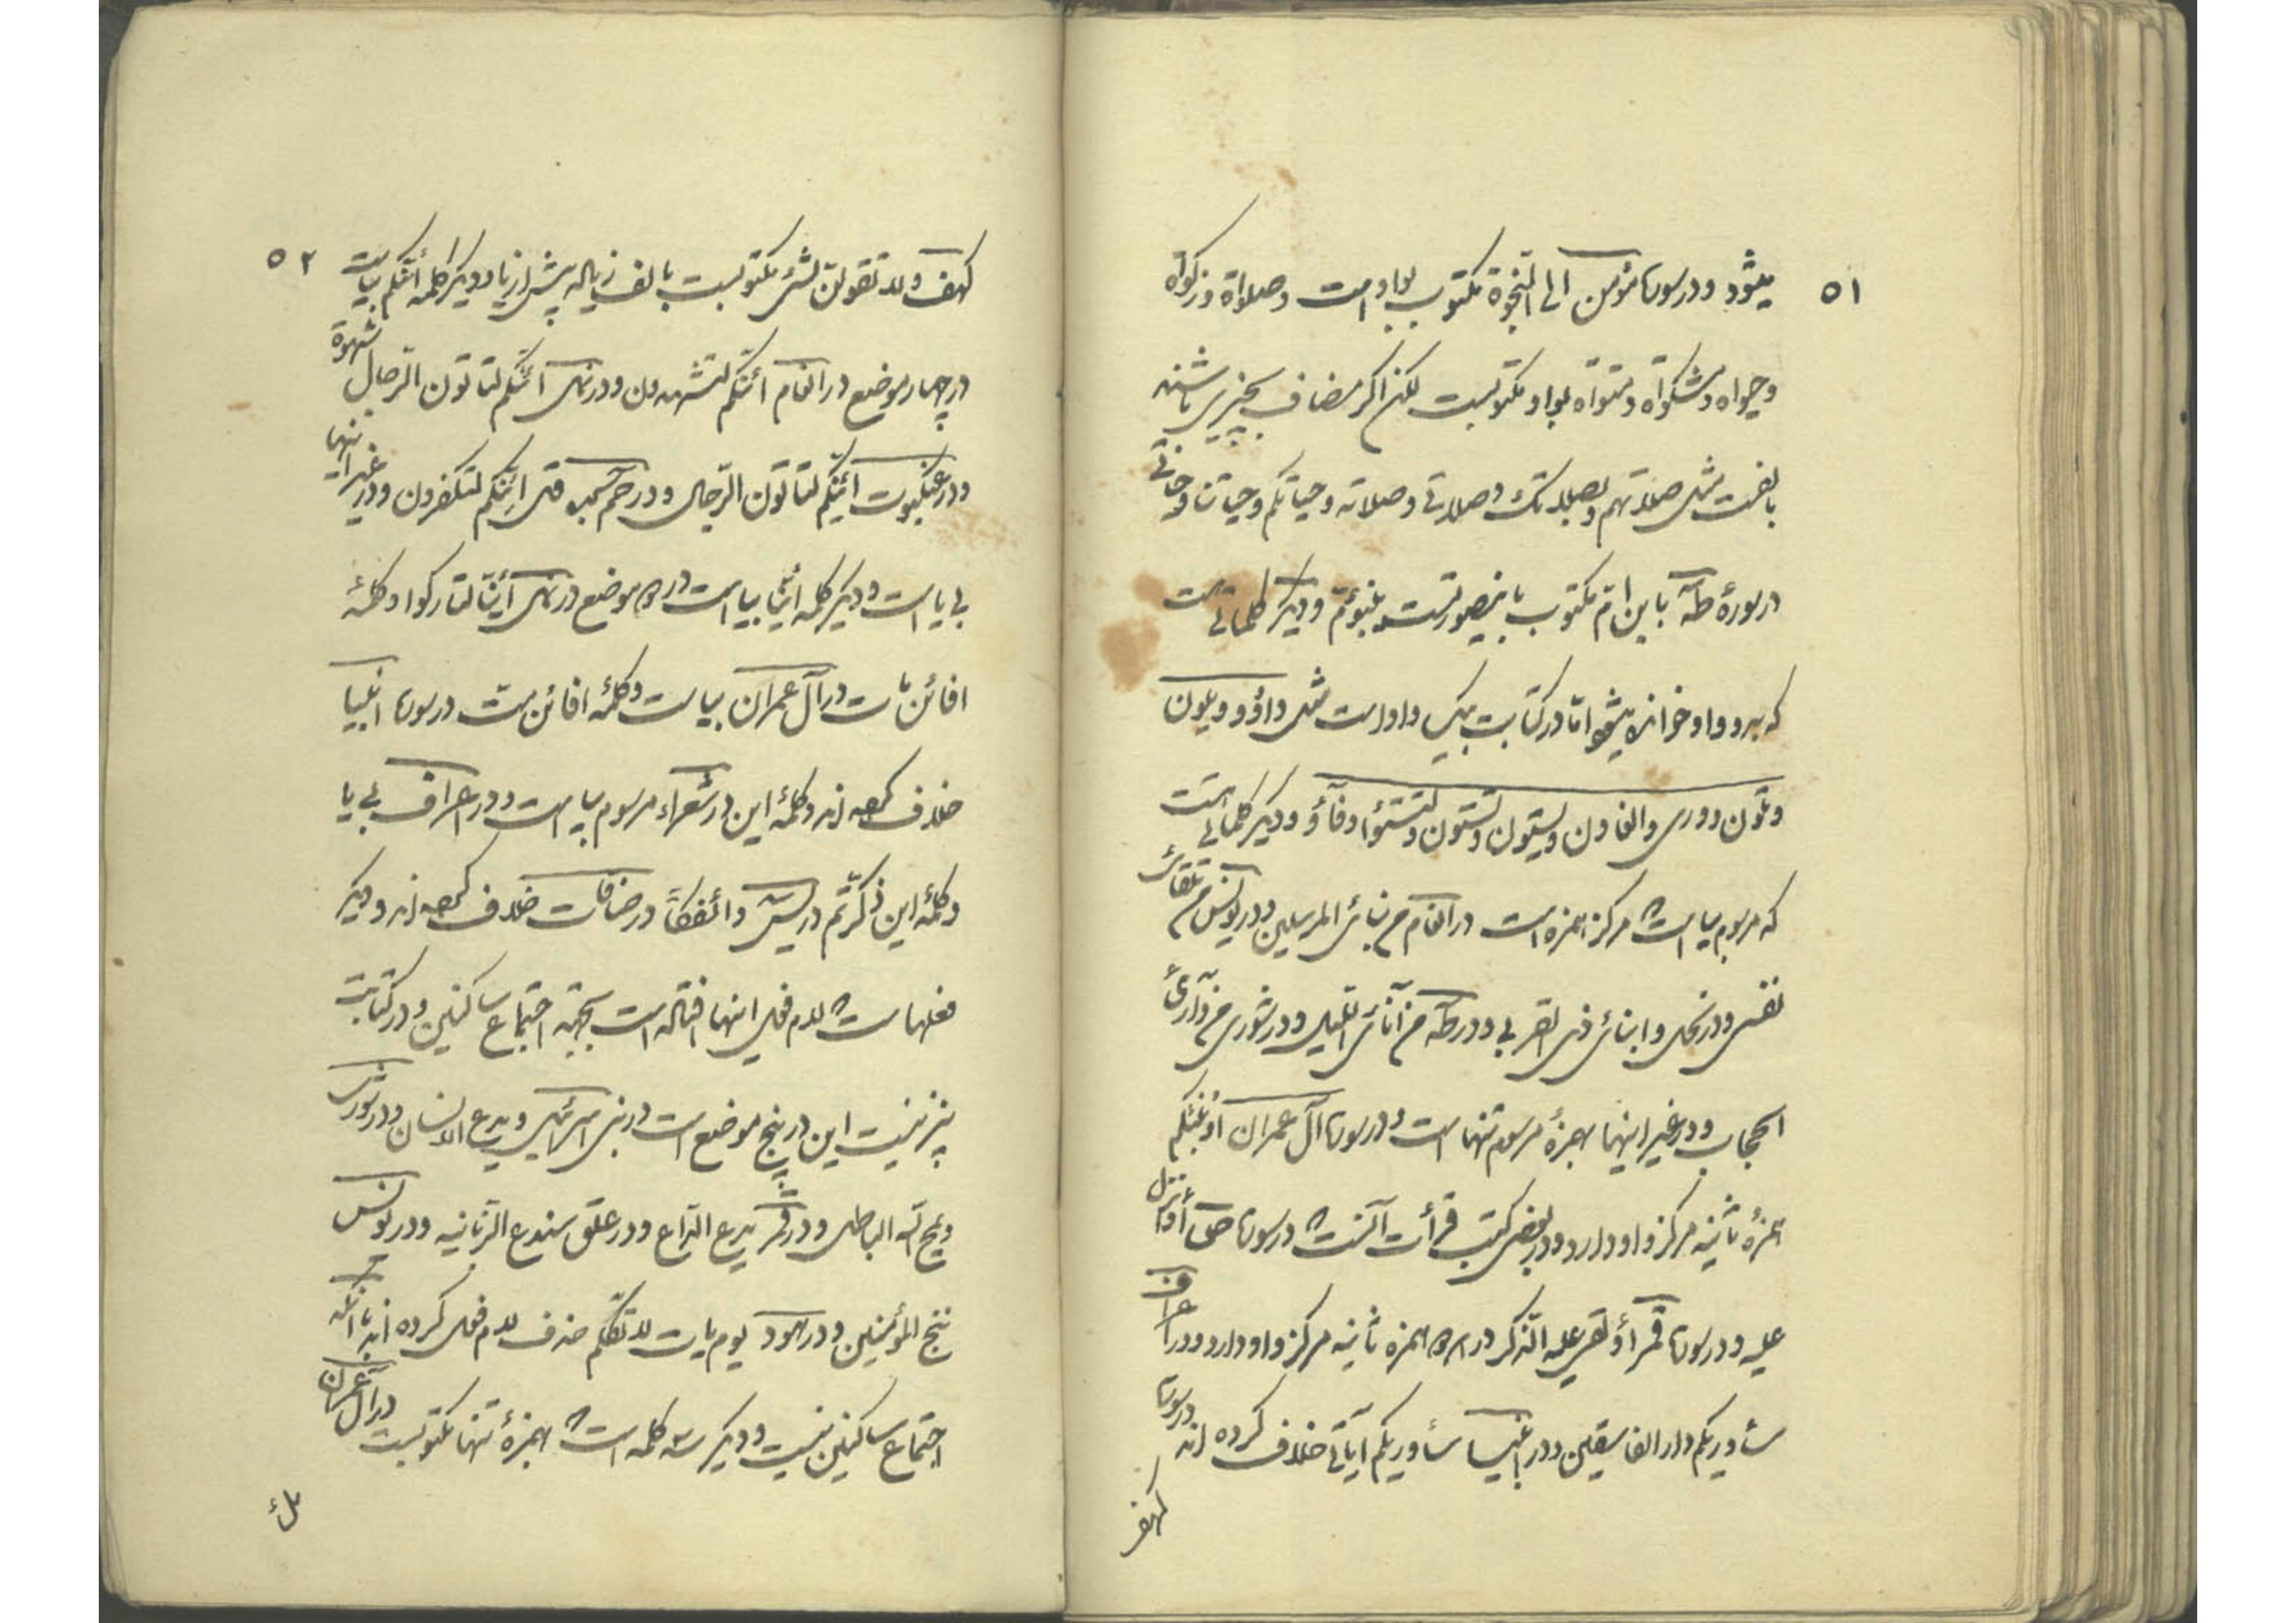 ٥١
میشود و در سوره مؤمن الی النجوة مکتوب بواو است و صلواة و زکواة
و حیواة و مشکواة و منواة بواو مکتوبست لکن اگر مضاف بچیزی باشند
بالفست مثل صلاتهم و بصلاتک و صلاتی و صلاته و حیاتکم و حیاتنا و حیاتی
در سورهٔ طه یا ابن ام مکتوب باینصورتست یبنؤم و دیگر کلماتی است
که بدو واو خوانده میشود اما در کتابت بیک واو است مثل داؤد و یلون
و تلون و وری و الغاون و یستون و تستون و لتستؤا و فآؤ و دیگر کلماتی است
که مرسوم بیا است که مرکز همزه است در انعام من نبائ المرسلین و در یونس من تلقائ
نفسی و در نحل و ایتائ ذی القربی و در طه من آنائ اللیل و در شوری من ورآئ
الحجاب و در غیر اینها بهمزهٔ مرسوم تنها است و در سوره آل عمران اؤنبئکم
همزهٔ ثانیه مرکز واو دارد و در بعضی کتب قرأت آنست که در سوره ص أؤنزل
علیه و در سوره قمر أؤلقی علیه الذکر در هر دو همزه ثانیه مرکز واو دارد و در اعراف
سأوریکم دار الفاسقین و در انبیا سأوریکم آیاتی خلاف کرده اند در سوره
کهف
٥٢
کهف و لا تقولن لشائ مکتوبست بالف زیاله پیش از یا و دیگر کلمه أئنکم بیاست
در چهار موضع در انعام ائنکم لتشهدون و در نمل ائنکم لتاتون الرجال شهوة
و در عنکبوت ائنکم لتاتون الرجال و در حم سجده قل ائنکم لتکفرون و در غیر اینها
بی یا است و دیگر کلمه ائنا بیا است در دو موضع در نمل أئنا لتارکوا و کلمهٔ
افائن مات در آل عمران بیاست و کلمهٔ افائن مت در سوره انبیا
خلاف کرده اند و کلمهٔ این در شعراء مرسوم بیا است و در اعراف بی یا
و کلمهٔ این ذکرتم در یس و ائفکا در صافات خلاف کرده اند و دیگر
فعلها است که لام فعل اینها افتاله است بجهة اجتماع ساکنین و در کتابت
نیز نیست این در پنج موضع است در بنی اسرائیل و یدع الانسان و در شوری
و یمح الله الباطل و در قمر یدع الداع و در علق سندع الزبانیه و در یونس
ننج المؤمنین و در هود یوم یات لا تکلم حذف لام فعل کرده اند با آنکه
اجتماع ساکنین نیست و دیگر سه کلمه است که بهمزهٔ تنها مکتوبست در آل عمران
ملء